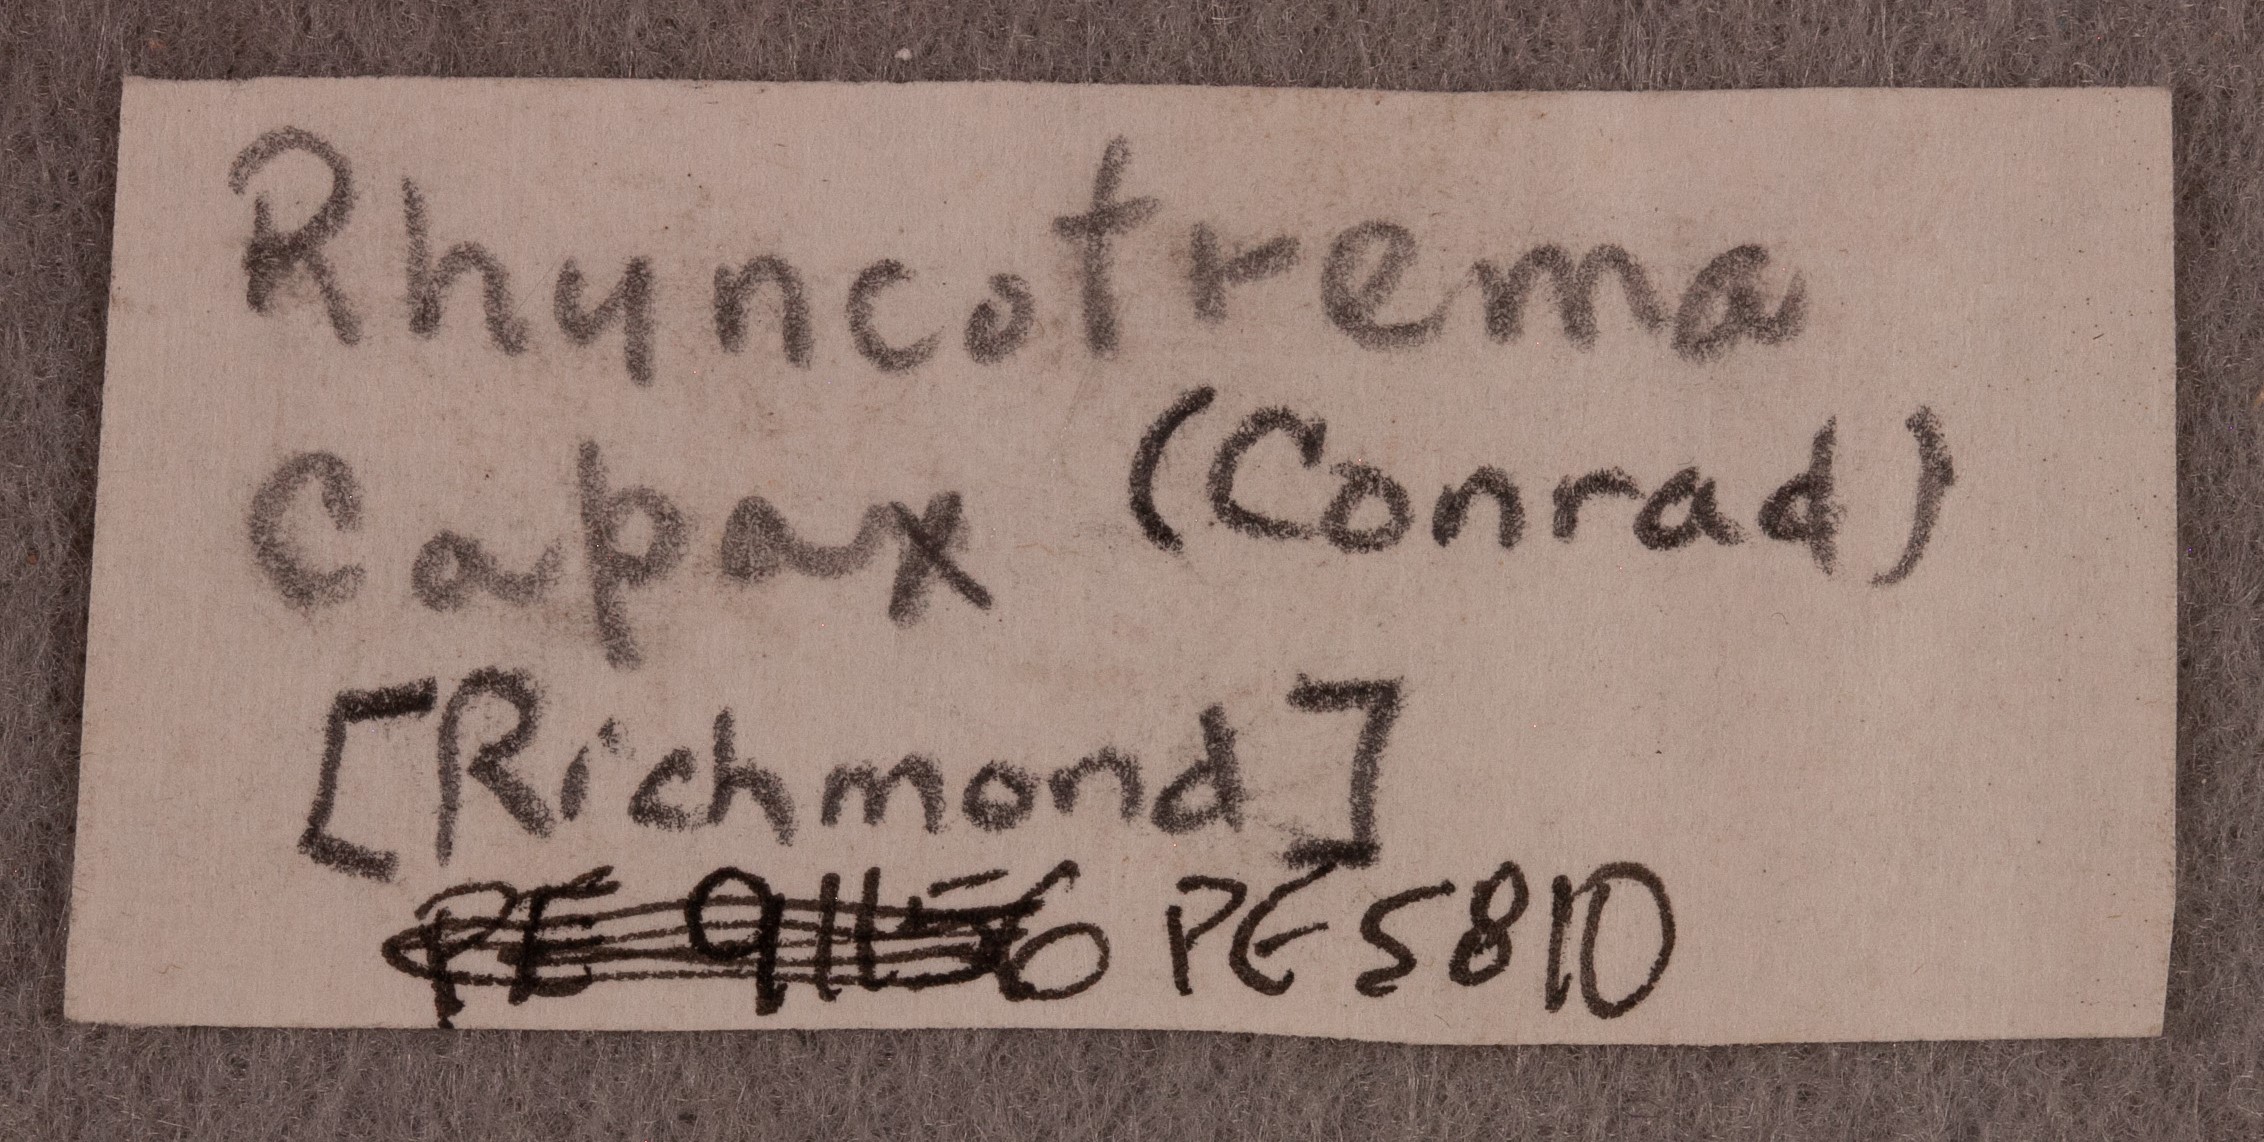 Rhyncotrema
Capax (Conrad)
[Richmond]
PE 91156 PE 5810